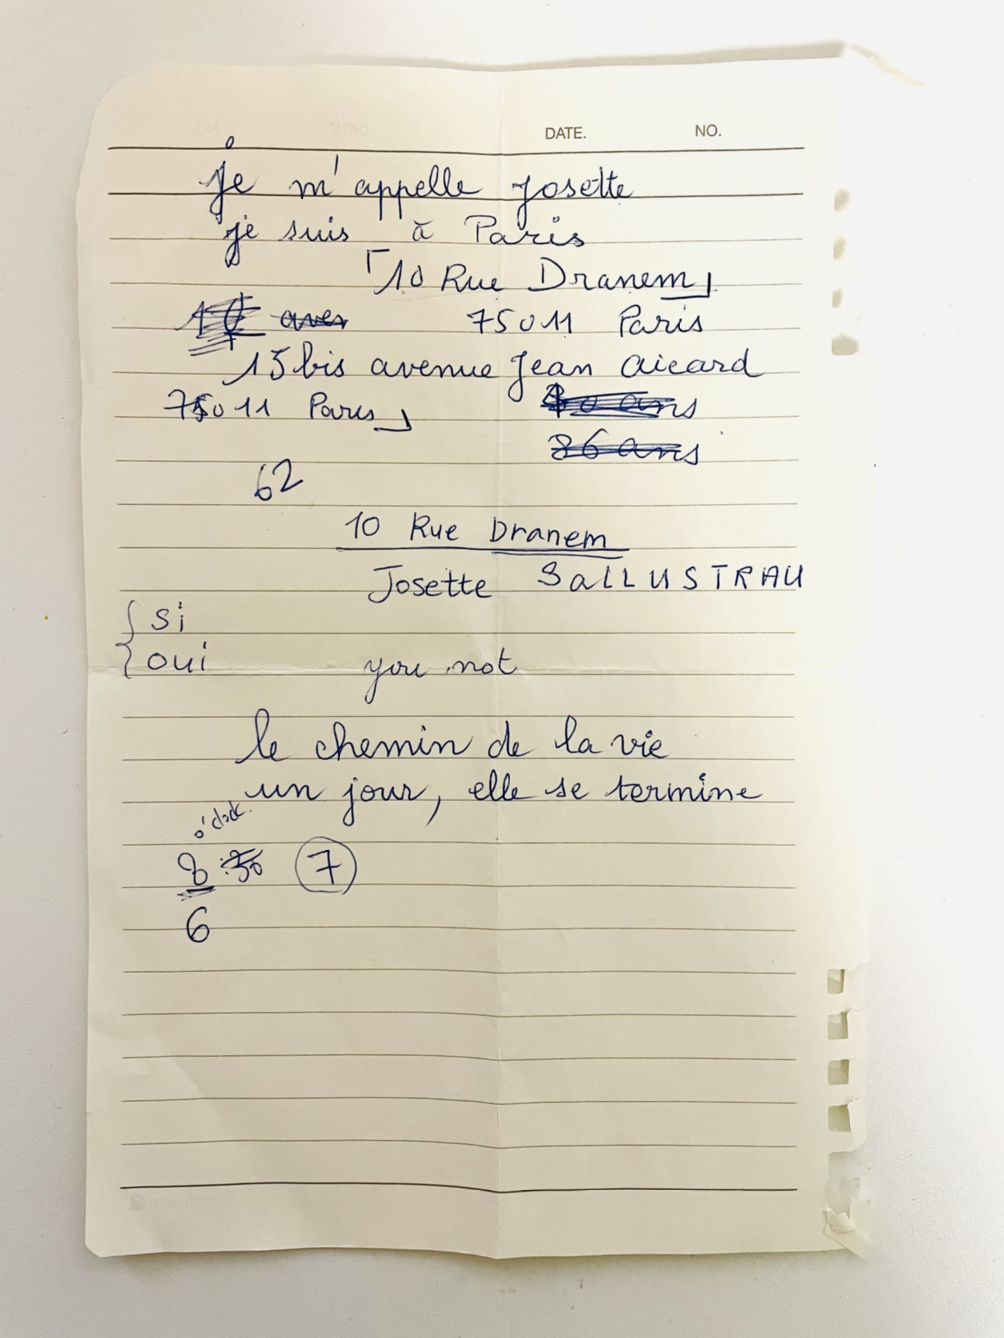 DATE. NO.
je m'appelle Josette
je suis à Paris
「10 Rue Dranem」
75011 Paris
15 bis avenue Jean Aicard
75011 Paris」
ans
86 ans
62
10 Rue Dranem
Josette SaLLUSTRAU
{ si
{ oui you not
le chemin de la vie
un jour, elle se termine
o'clock.
8 :30 7
6